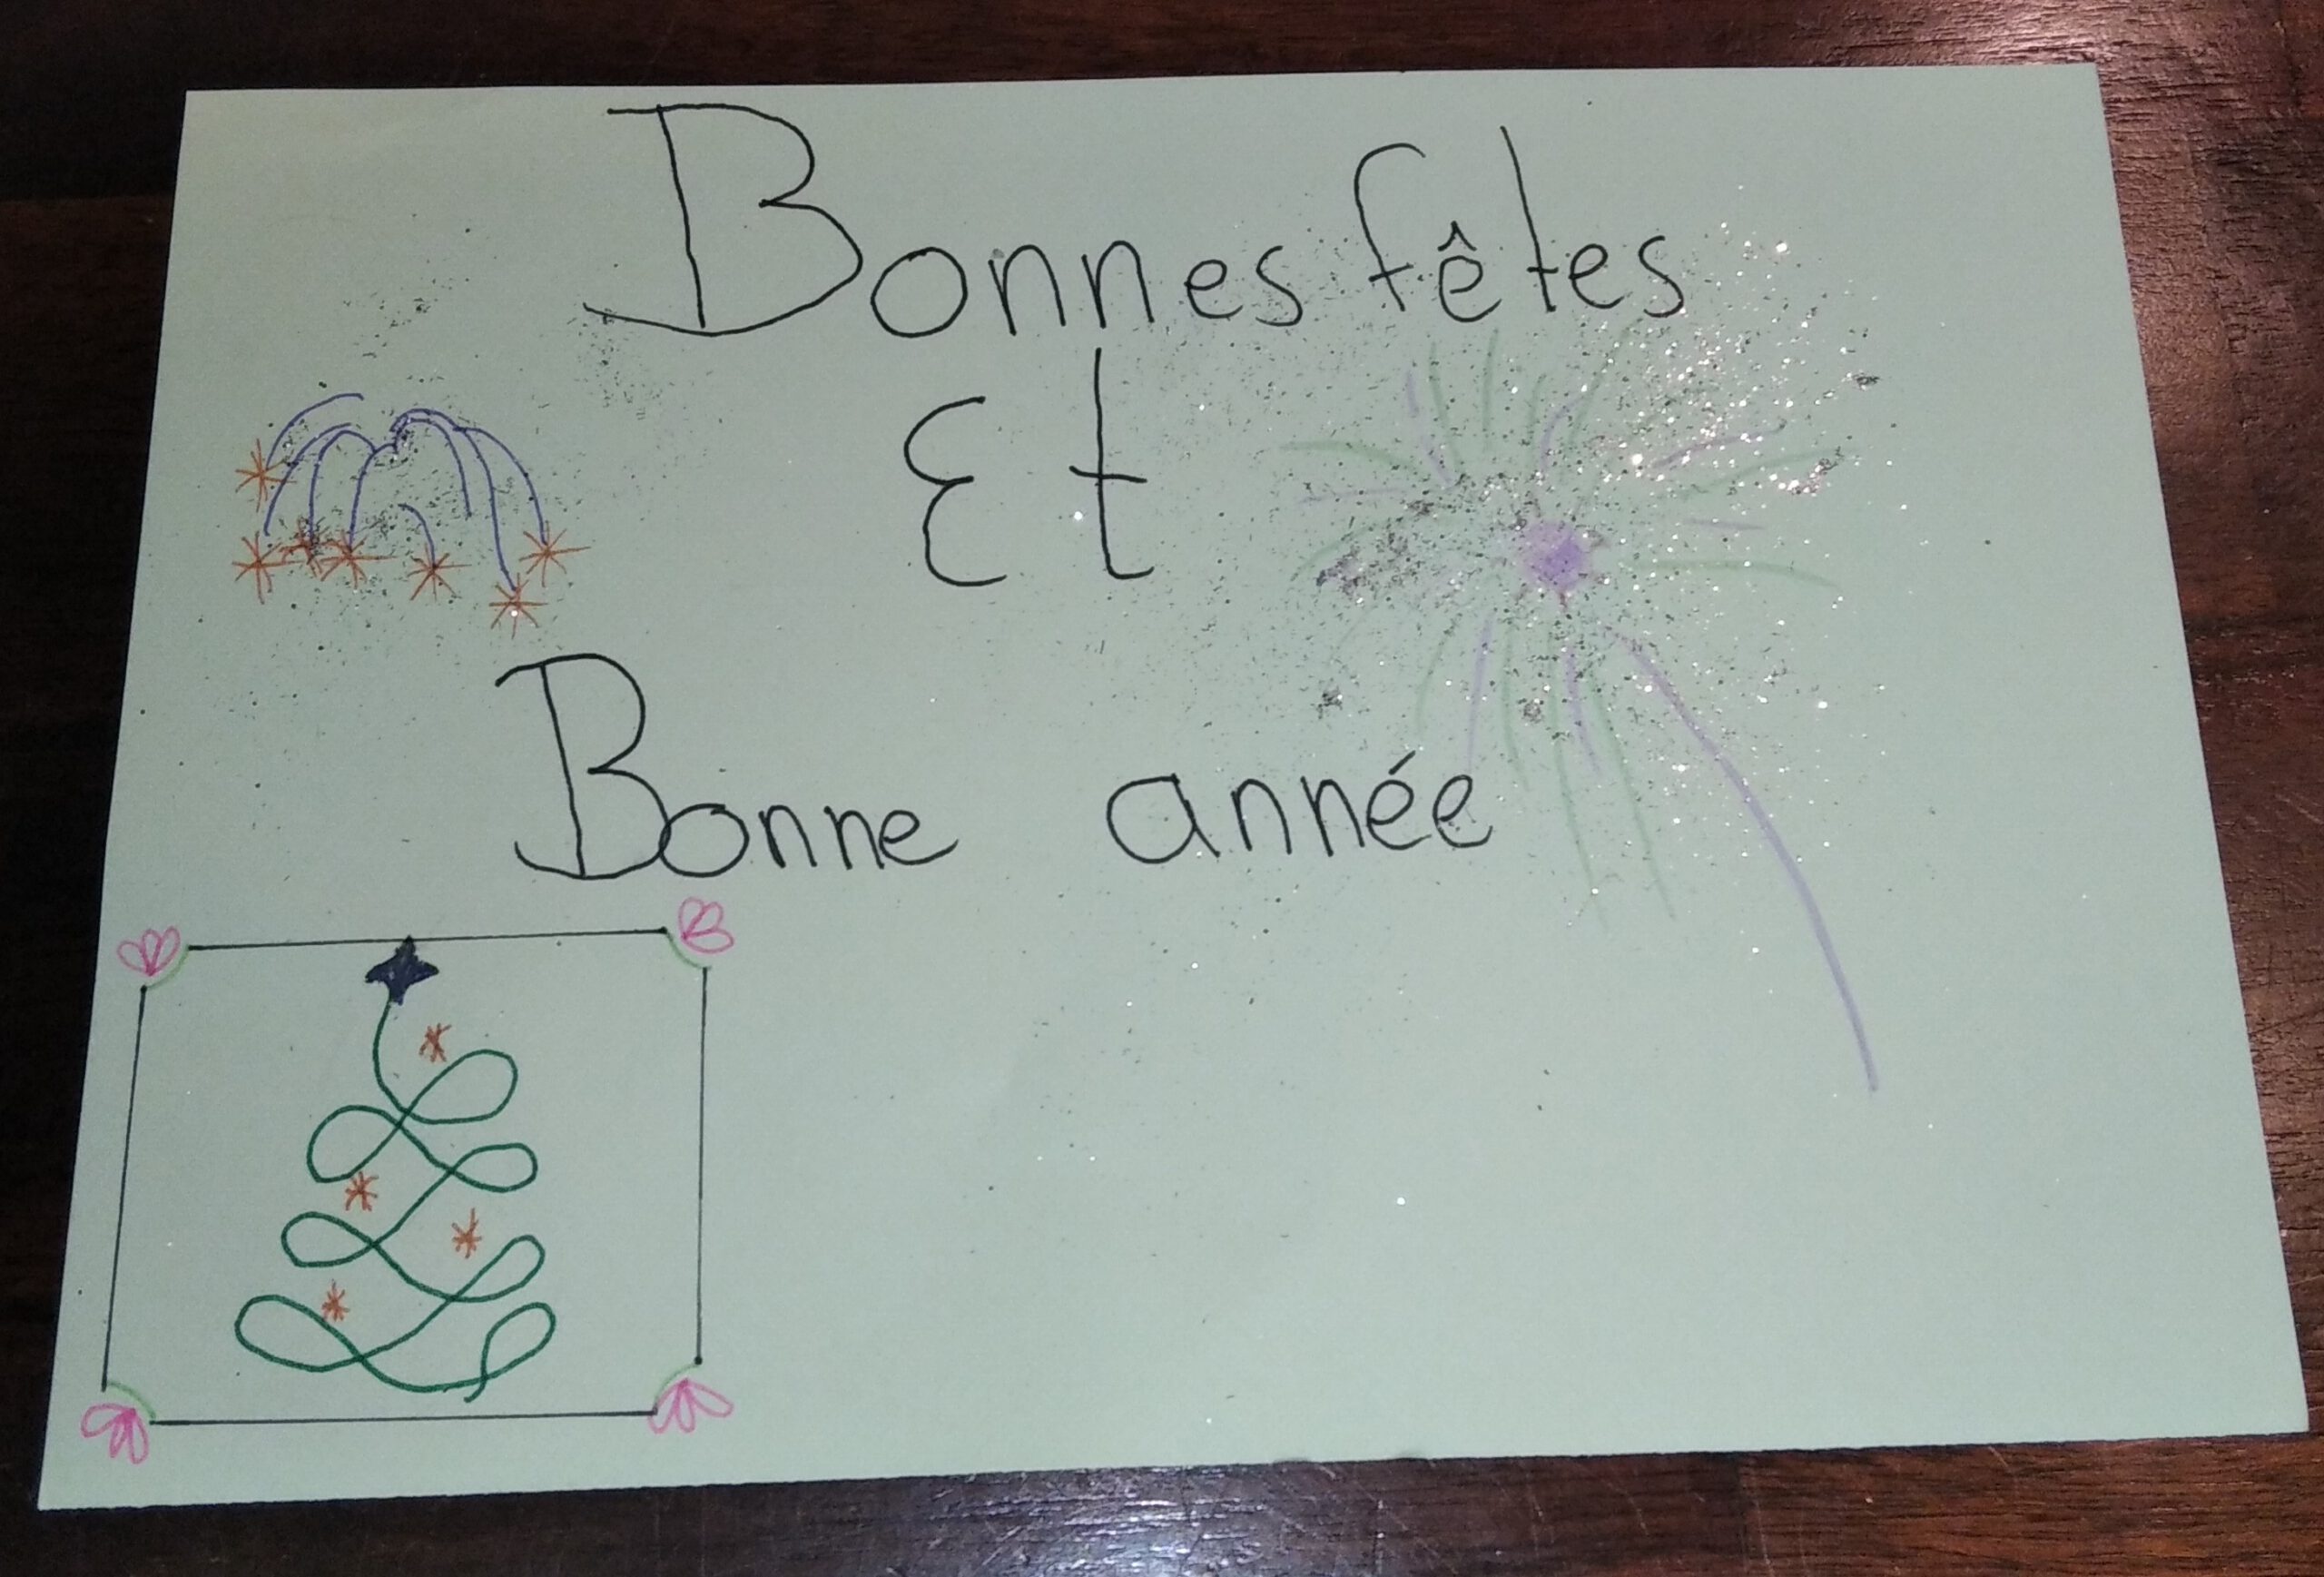 Bonnes fêtes
Et
Bonne année